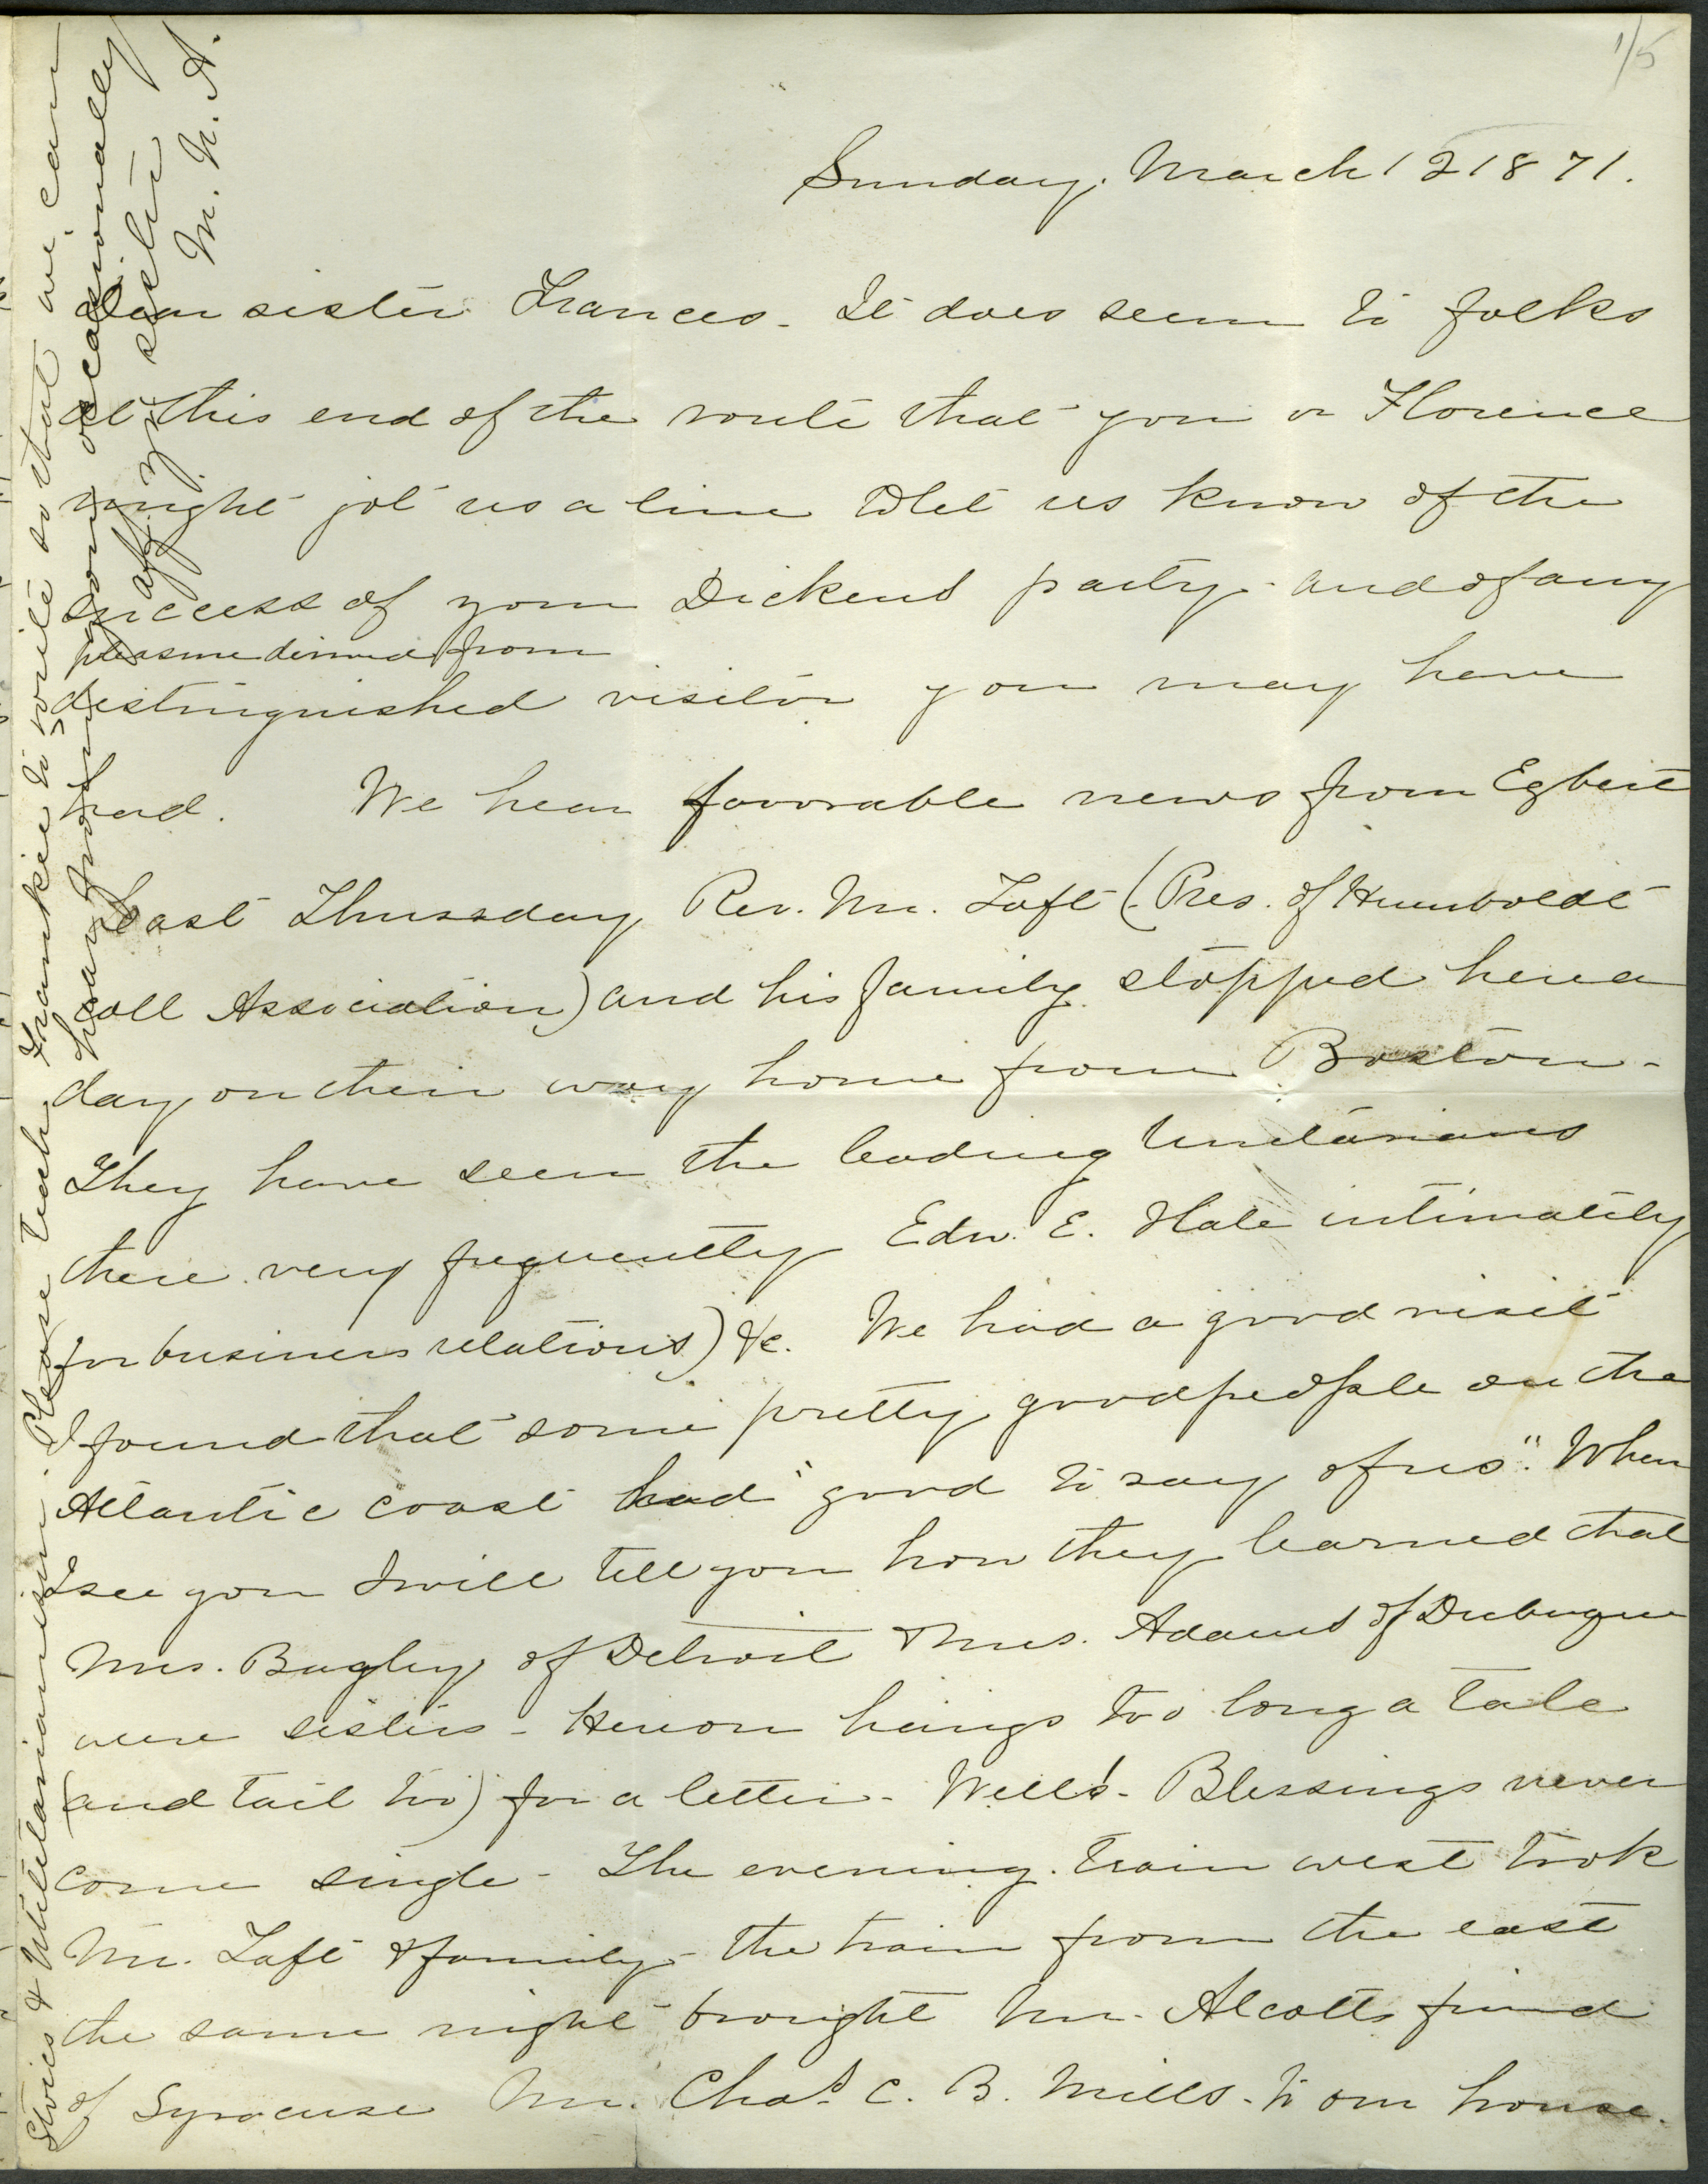 1/5
Sunday. March 12 1871.
Dear sister Frances - It does seem to folks
at this end of the route that you or Florence
might jot us a line & let us know of the
success of your Dickens party - and of any
pleasure derived from
distinguished visitor you may have
had. We hear favorable news from Egbert
Last Thursday Rev. Mr. Taft (Pres. of Humboldt
coll Association) and his family stopped here a
day on their way home from Boston -
They have seen the leading Unitarians
there very frequently Edw. E. Hale intimately
(for business relations) &c. We had a good visit
I found that some pretty good people on the
Atlantic coast had "good to say of us". When
I see you I will tell you how they learned that
Mrs. Bagley of Detroit & Mrs. Adams of Dubuque
were sisters - Hereon hangs too long a tale
(and tail too) for a letter - Well! - Blessings never
come single - The evening train west took
Mr. Taft & family - the train from the east
the same night brought Mr. Alcotts friend
of Syracuse Mr. Chas. C. B. Mills - to our house.
Stoics & Utilitarianism. Please teach Frankie to write so that we can
hear from you occasionally
aff. yr sister
M. N. A.